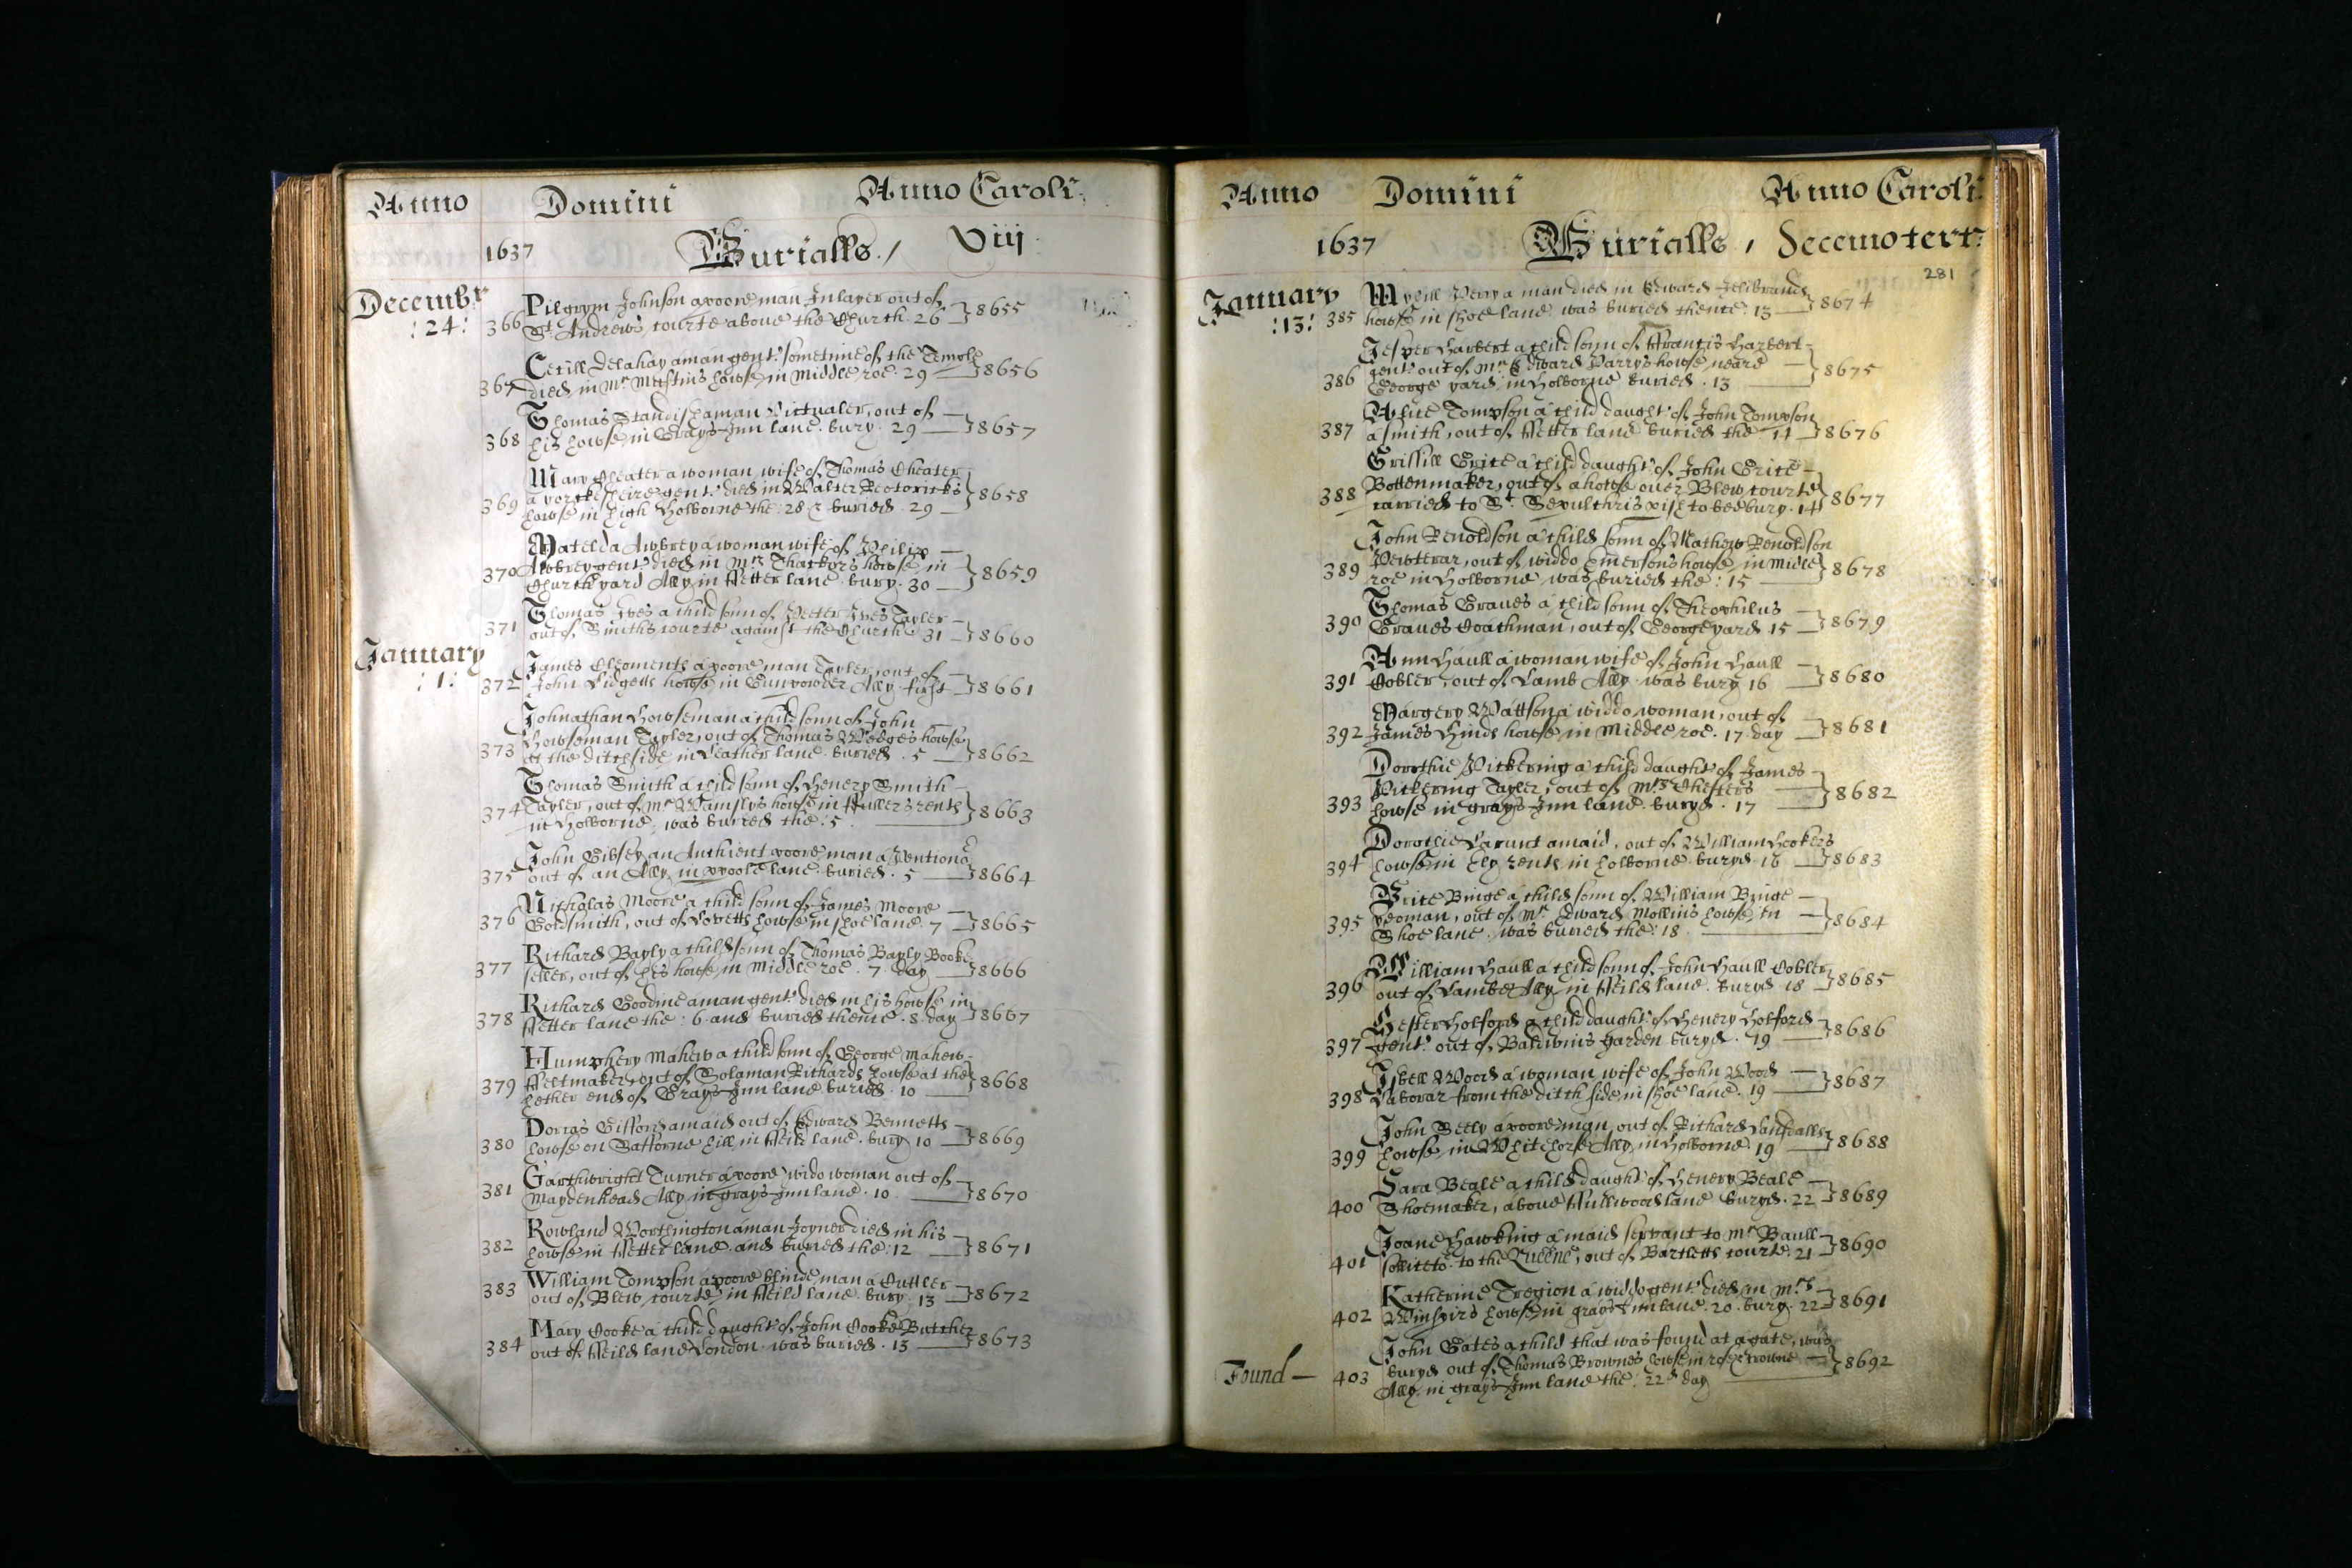 Anno Domini Anno Caroli
1637 Burialls / Viij
Decembr
:24:
366 Pilgrym Johnson a poore man Inlayer out of
St Andrews courte aboue the Church. 26 8655
367 Cecill Delahay a man gent: sometime of the Temple
died in Mr howse in Middle roe. 29 8656
368 Thomas Standish a man Victualer, out of
his howse in Grays Inn lane. bury. 29 8657
369 Mary Cheater a woman wife of Thomas Cheater
a yorckesheire gent: died in Walter
howse in high Holborne the: 28 & buried. 29 8658
370 Matelda Awbrey a woman wife of Philipp
Awbrey gent: died in Mrs Thackers howse, in
Church yard Ally in ffetter lane. bury. 30 8659
371 Thomas Ives a child sonn of Peeter Ives Tayler
out of Smiths courte against the Church 31 8660
January
:1:
372 James Cleoments a poore man Tayler, out of
John Lidgetts howse in Gunpowder Ally. first 8661
373 Johnathan Howseman a child sonn of John
Howseman Tayler, out of Thomas Wedges howse
at the ditchside in Leather lane. buried. 5 8662
374 Thomas Smith a child sonn of Henery Smith
Tayler, out of Mr Wamslys howse in ffullers rents
in Holborne, was buried the: 5 8663
375 John Gibsey an Anchient poore man a Pentiono:
out of an Ally in poole lane. buried. 5 8664
376 Nicholas Moore a child sonn of James Moore
Goldsmith, out of Lovetts howse in shoe lane. 7 8665
377 Richard Bayly a child sonn of Thomas Bayly Booke
seller, out of his howse in Middle roe. 7. day 8666
378 Richard Goodine a man gent: died in his howse in
ffetter lane the: 6 and buried thence. 8. day 8667
379 Humphery Mahew a child sonn of George Mahew
ffeltmaker, out of Solaman Richards howse at the
hether end of Grays Inn lane buried. 10 8668
380 Dorcas Gifford a maid out of Edward Bennetts
howse on Safforne hill in ffeild lane. bury 10 8669
381 Garthwright Turner a poore wido woman out of
Maydenhead Ally in grays Inn lane. 10 8670
382 Rowland Worthington a man Joyner died in his
howse in ffetter lane. and buried the: 12 8671
383 William Tompson a poore blinde man a Cuttler
out of Blew courte in ffeild lane. bury. 13 8672
384 Mary Cooke a child daught: of John Cooke Butcher
out of ffeild lane London. was buried. 13 8673
Anno Domini Anno Caroli
1637 Burialls / decemotert:
281
January
:13:
385 Mychill Perry a man died in Edward
howse in shoe lane. was buried thence: 13 8674
386 Jesper Harbert a child sonn of ffrancis Harbert
gent: out of Mr Edward Parrys howse neare
George yard in Holborne buried. 13 8675
387 Alice Tompson a child daught: of John Tompson
a smith, out of ffetter lane buried the 14 8676
388 Grissill Grice a child daught: of John Grice
Bottenmaker, out of a howse ouer Blew courte
carried to St. Sepulchris pish to bee bury. 14 8677
389 John Renoldson a child sonn of Mathew Renoldson
Pewterar, out of widdo Emersons howse in Midle
roe in Holborne, was buried the: 15 8678
390 Thomas Graues a child sonn of Theophilus
Graues Coachman, out of George yard 15 8679
391 Ann Haull a woman wife of John Haull
Cobler, out of Lamb Ally was bury 16 8680
392 Margery Wattson a widdo woman, out of
James Hinds howse in Middle roe. 17 day 8681
393 Dorothie Pickering a child daught: of James
Pickering Tayler, out of Mrs Chesters
howse in grays Inn lane. buryd. 17 8682
394 Dorothie Larunt a maid, out of William Hookers
howse in Ely rents in holborne. buryd. 18 8683
395 Brice Binge a child sonn of William Binge
yeoman, out of Mr Edward Mollins howse in
Shoe lane, was buried the: 18 8684
396 William Haull a child sonn of John Haull Cobler
out of Lambe Ally in ffeild lane. buryd 18 8685
397 Hester Holford a child daught: of Henery Holford
gent: out of Baldwins garden buryd. 19 8686
398 Isbell Wood a woman wife of John Wood
Laborar from the ditch side in shoe lane. 19 8687
399 John Seely a poore man, out of Richard
howse in Whitehorse Ally in Holborne 19 8688
400 Sara Beale a child daught: of Henery Beale
Shoemaker, aboue ffullwood lane buryd. 22 8689
401 Joane Hawking a maid servant to Mr Baull
sollicito: to the Queene, out of Bartletts courte: 21 8690
402 Katherine Tregion a widdo gent: died in Mrs
howse in grays Inn lane. 20. bury. 22 8691
Found
403 John Gates a child that was found at a gate, was
buryd out of Thomas Brownes howse in rose & crowne
Ally in grays Inn lane the: 22d day 8692